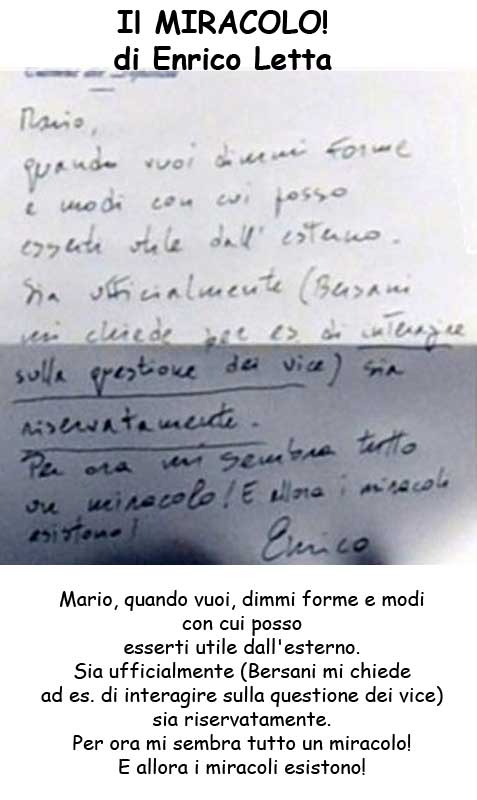 Il MIRACOLO!
di Enrico Letta
Mario,
quando vuoi dimmi forme
e modi con cui posso
esserti utile dall'esterno.
Sia ufficialmente (Bersani
mi chiede per es di interagire
sulla questione dei vice) sia
riservatamente.
Per ora mi sembra tutto
un miracolo! E allora i miracoli
esistono!
Enrico
Mario, quando vuoi, dimmi forme e modi
con cui posso
esserti utile dall'esterno.
Sia ufficialmente (Bersani mi chiede
ad es. di interagire sulla questione dei vice)
sia riservatamente.
Per ora mi sembra tutto un miracolo!
E allora i miracoli esistono!